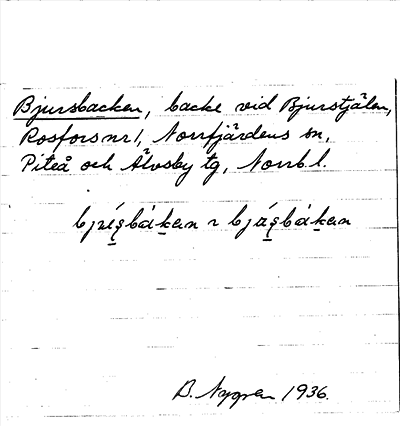 Bjursbacken, backe vid Bjurstjälen,
Rosfors nr 1, Norrfjärdens sn,
Piteå och Älvsby tg, Norrb. l.
B. Nygren 1936.